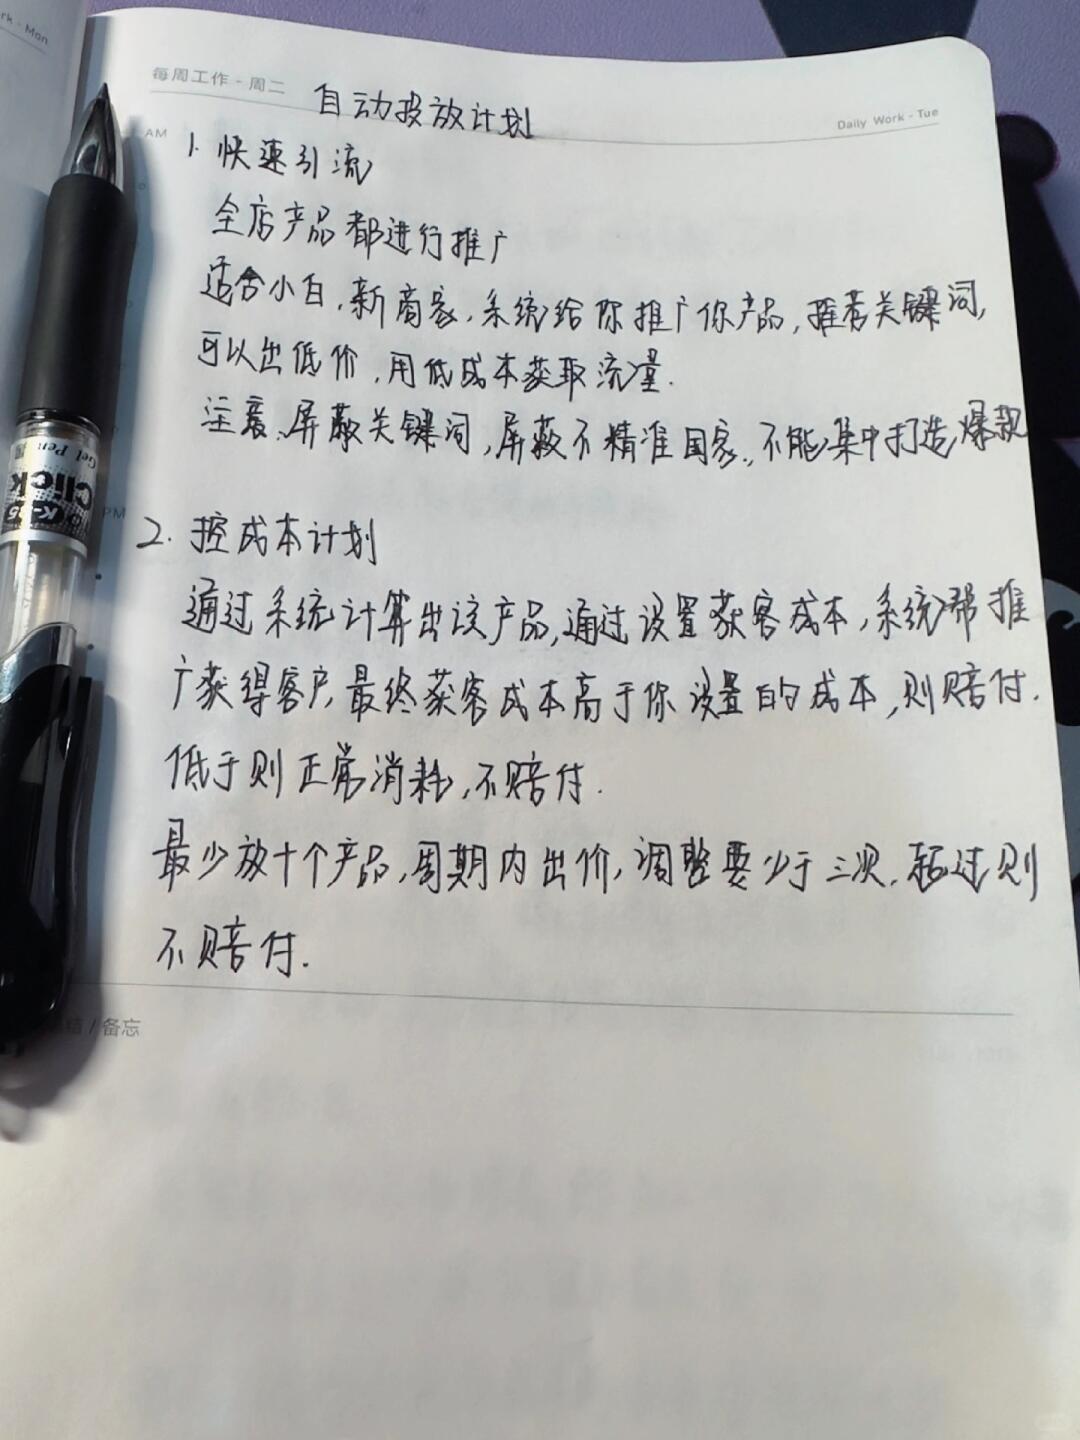 rk - Mon
每周工作 - 周二
自动投放计划
Daily Work - Tue
AM
1. 快速引流
全店产品都进行推广
适合小白,新商家,系统给你推广你产品,推荐关键词,
可以出低价,用低成本获取流量.
注意:屏蔽关键词,屏蔽不精准国家,不能集中打造爆款
PM
2. 控成本计划
通过系统计算出该产品,通过设置获客成本,系统帮推
广获得客户,最终获客成本高于你设置的成本,则赔付.
低于则正常消耗,不赔付.
最少放十个产品,周期内出价,调整要少于三次,超过则
不赔付.
结 / 备忘
Gel Pen
Click
K-35